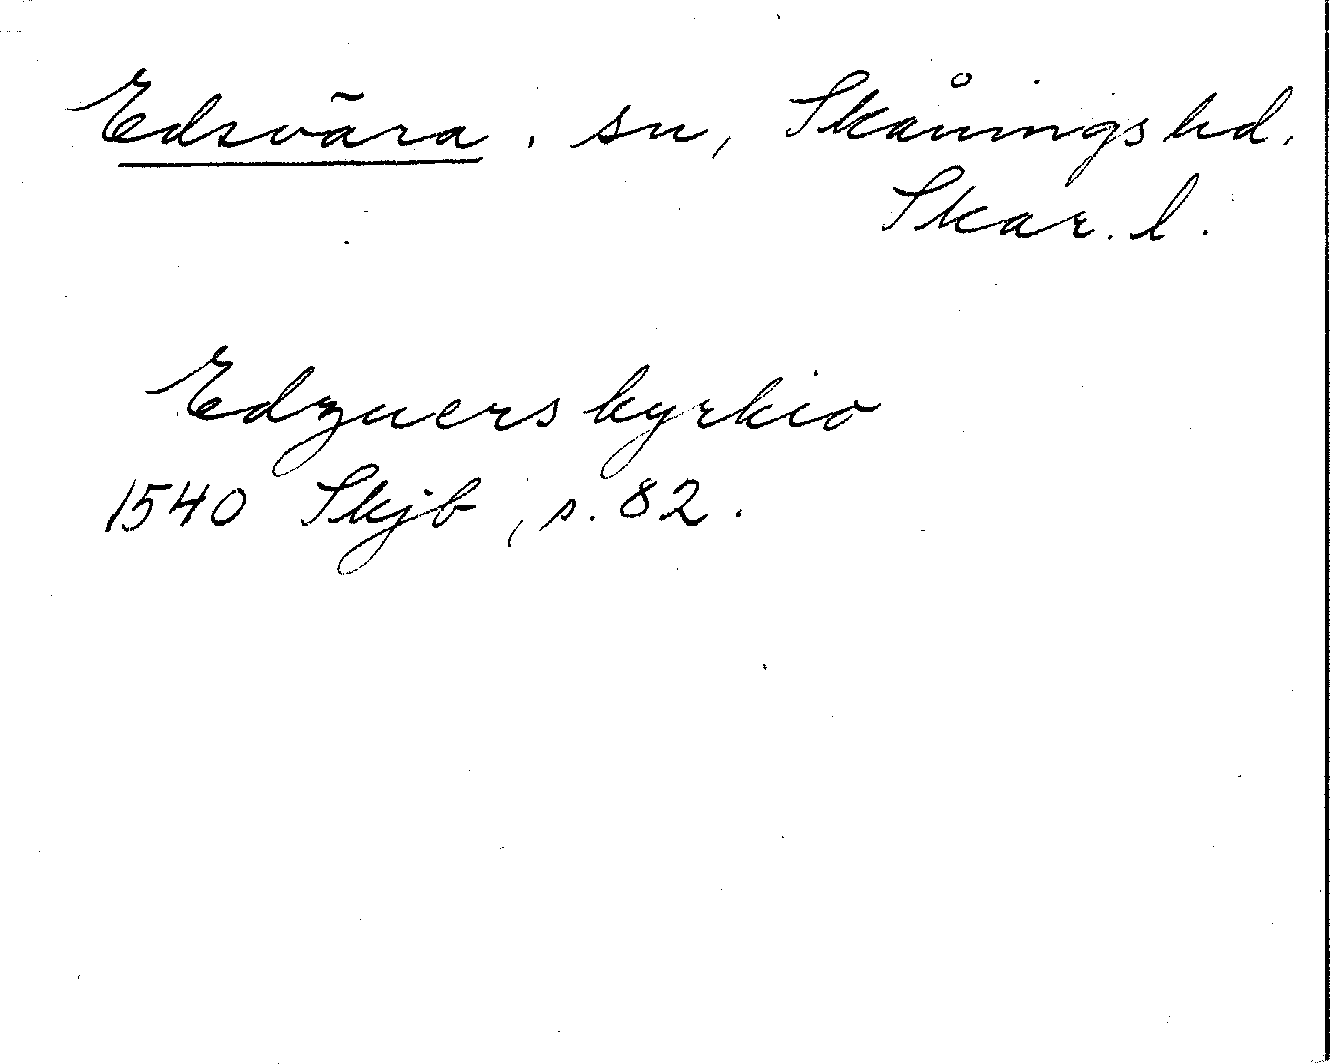 Edsvära. sn, Skånings hd.
Skar. l.
Edzuers kyrkio
1540 Skjb, s. 82.